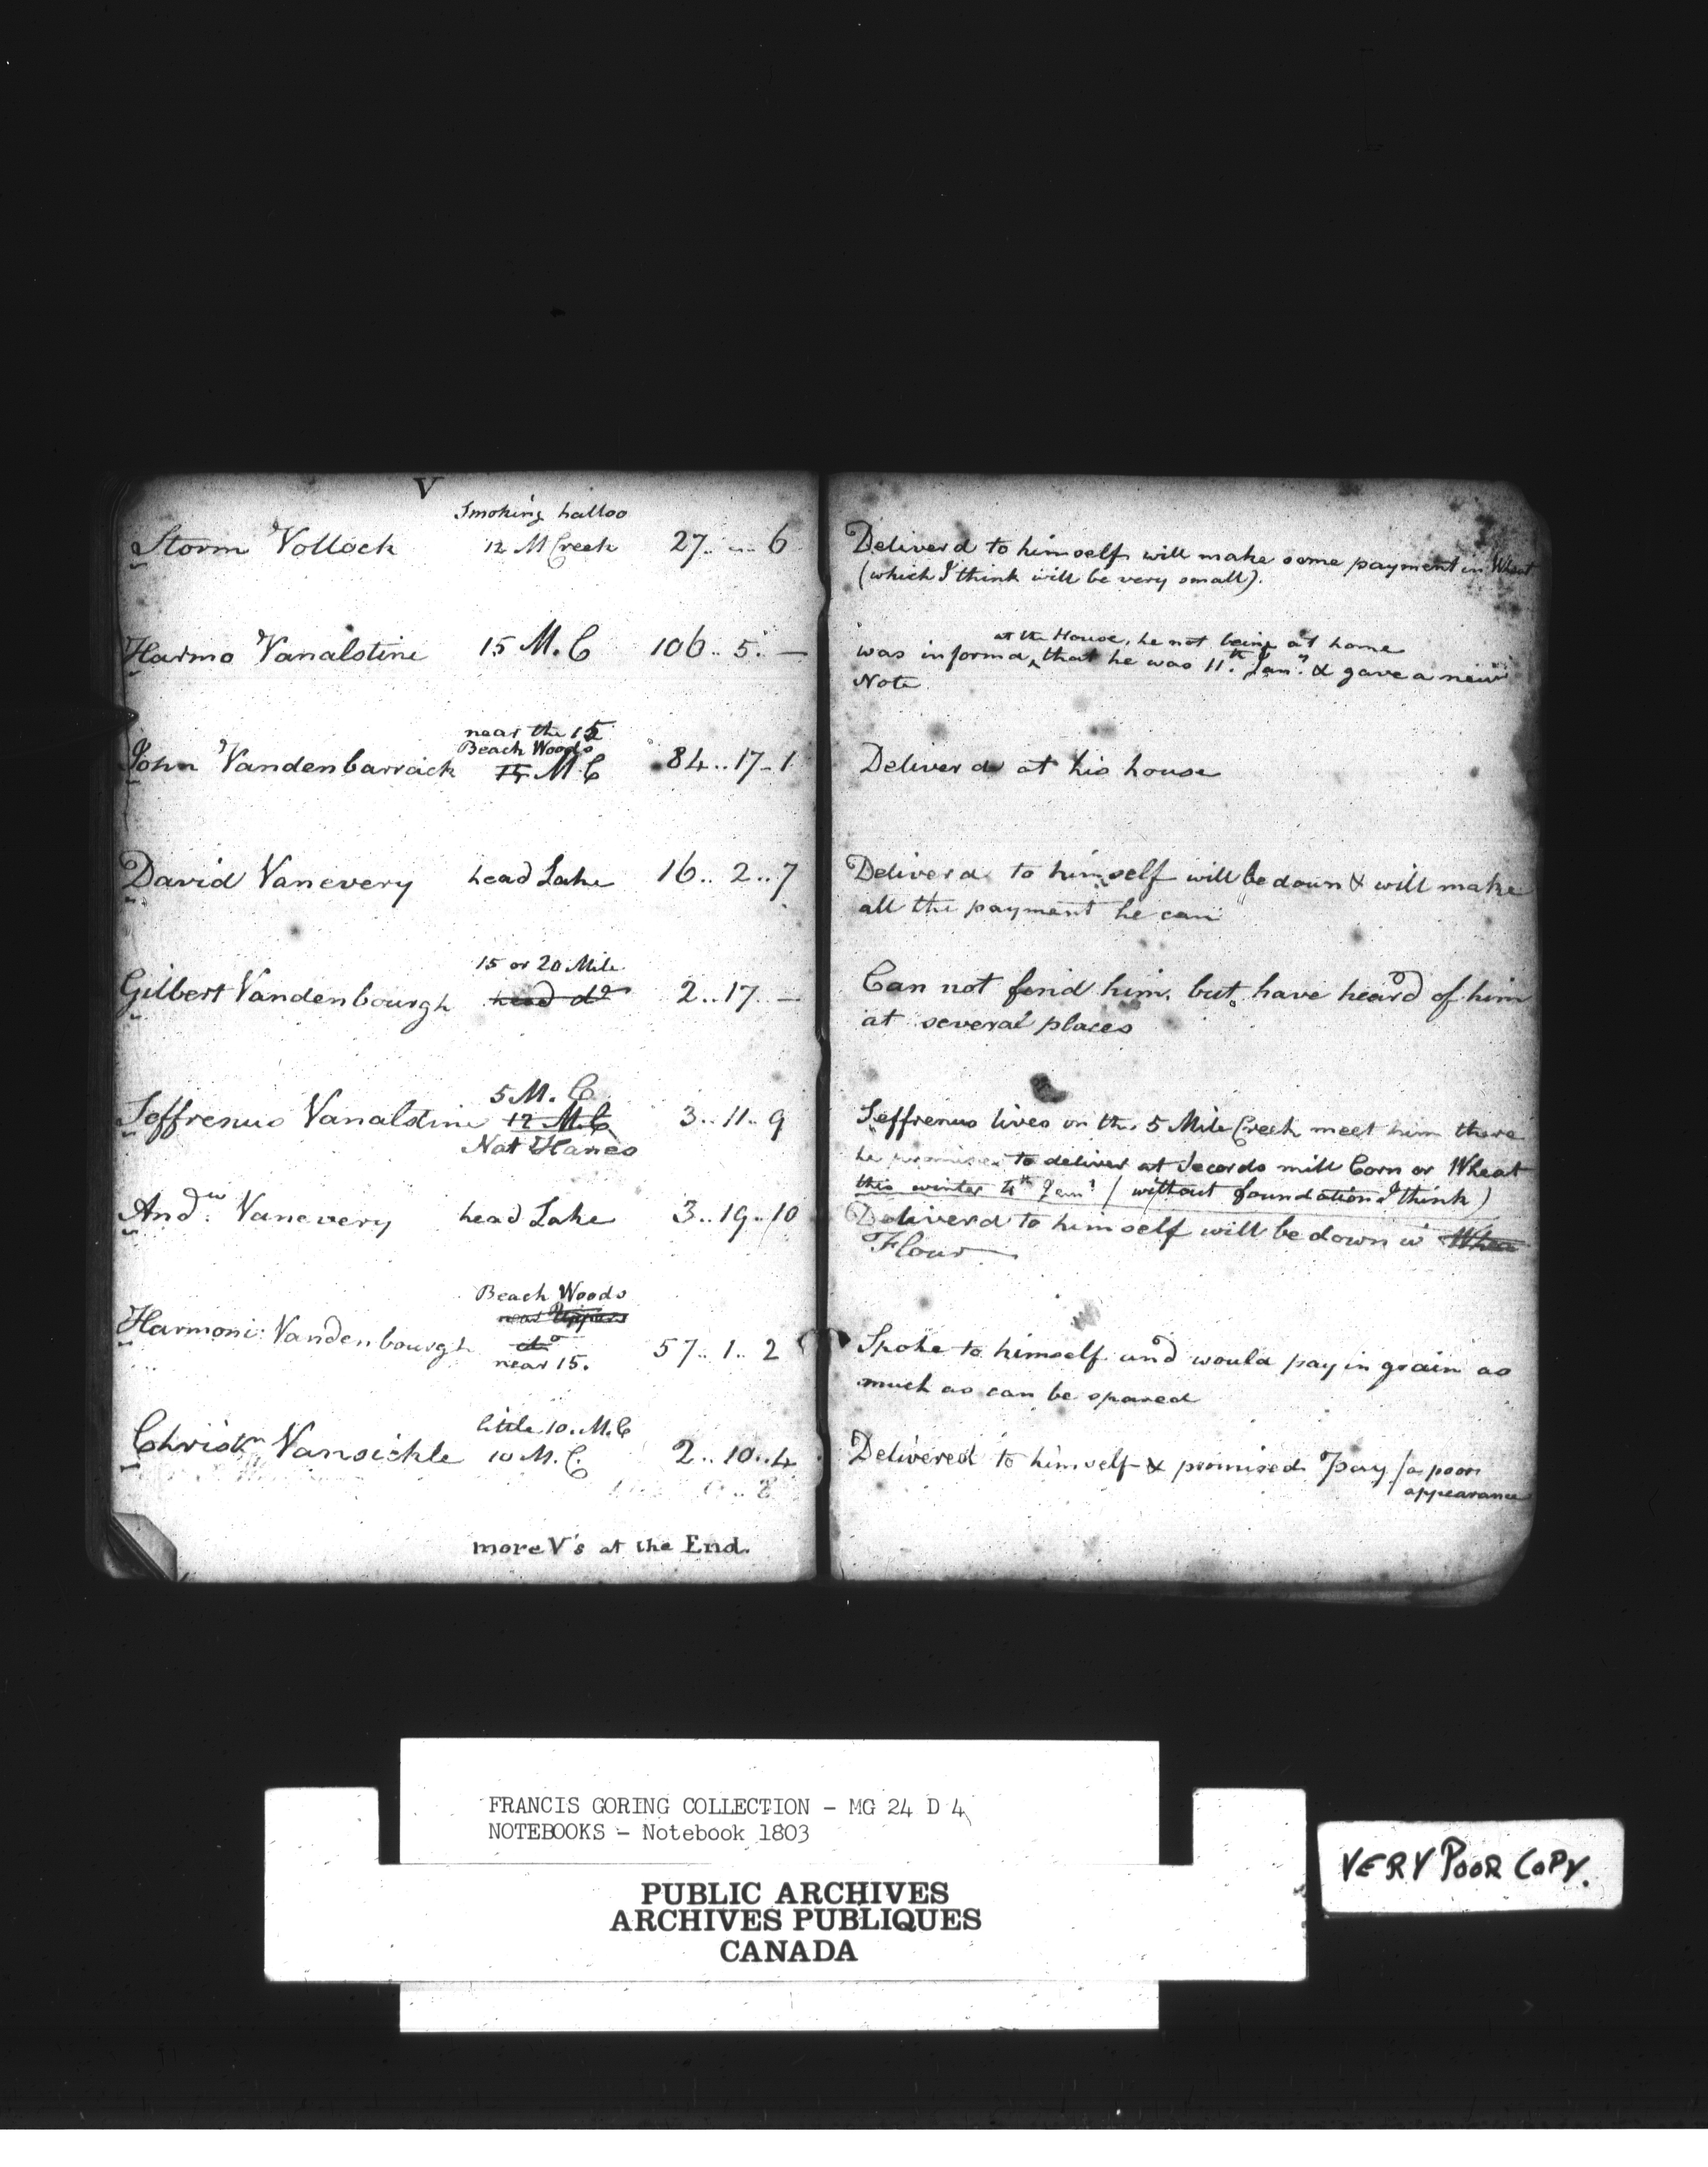 V
Smoking halloo
Storm Vollock 12 M Creek 27.. ... 6
Harmo Vanalstine 15 M. C 106.. 5. —
near the 15
Beach Woods
John Vandenbarrack 15 M. C 84..17-1
David Vanevery head Lake 16.. 2..7
15 or 20 Mile
Gilbert Vandenbourgh head do 2..17. —
5 M. C
Jeffrenus Vanalstine 12 M.C 3..11..9
Nat Hanes
Andw. Vanevery head Lake 3..19..10
Beach Woods
near
do
Harmoni: Vandenbourgh near 15. 57..1..2
little 10. M.C
Christn Vansickle 10 M. C. 2..10..4
more V's at the End.
Deliverd to himself will make some payment in Wheat
(which I think will be very small).
at the House, he not being at home
was informd that he was 11th Jany. & gave a new
Note
Deliverd at his house
Deliverd to himself will be down & will make
all the payment he can
Can not find him, but have heard of him
at several places
Jeffrenus lives on the 5 Mile Creek meet him there
he promises to deliver at Secords mill Corn or Wheat
this winter 4th Jany (without foundation I think)
Deliverd to himself will be down w
Flour
Spoke to himself and would pay in grain as
much as can be spared
Delivered to himself & promised pay (a poor
appearance
FRANCIS GORING COLLECTION - MG 24 D 4
NOTEBOOKS - Notebook 1803
PUBLIC ARCHIVES
ARCHIVES PUBLIQUES
CANADA
VERY POOR COPY.